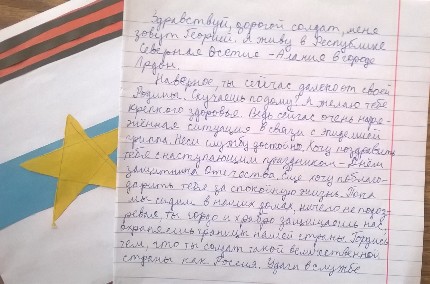 Здравствуй, дорогой солдат, меня
зовут Георгий. Я живу в Республике
Северная Осетие - Алания в городе
Ардон.
Наверное, ты сейчас далеко от своей
Родины. Скучаешь по дому? Я желаю тебе
крепкого здоровья. Ведь сейчас очень напря-
жённая ситуация в связи с эпидемией
гриппа. Неси службу достойно. Хочу поздравить
тебя с наступающим праздником - Днём
защитника Отечества. Ещё хочу поблаго-
дарить тебя за спокойную жизнь. Пока
мы сидим в наших домах ничего не подоз-
ревая, ты гордо и храбро защищаешь нас,
охраняешь границы нашей страны. Гордись
тем, что ты солдат такой величественной
страны как Россия. Удачи в службе